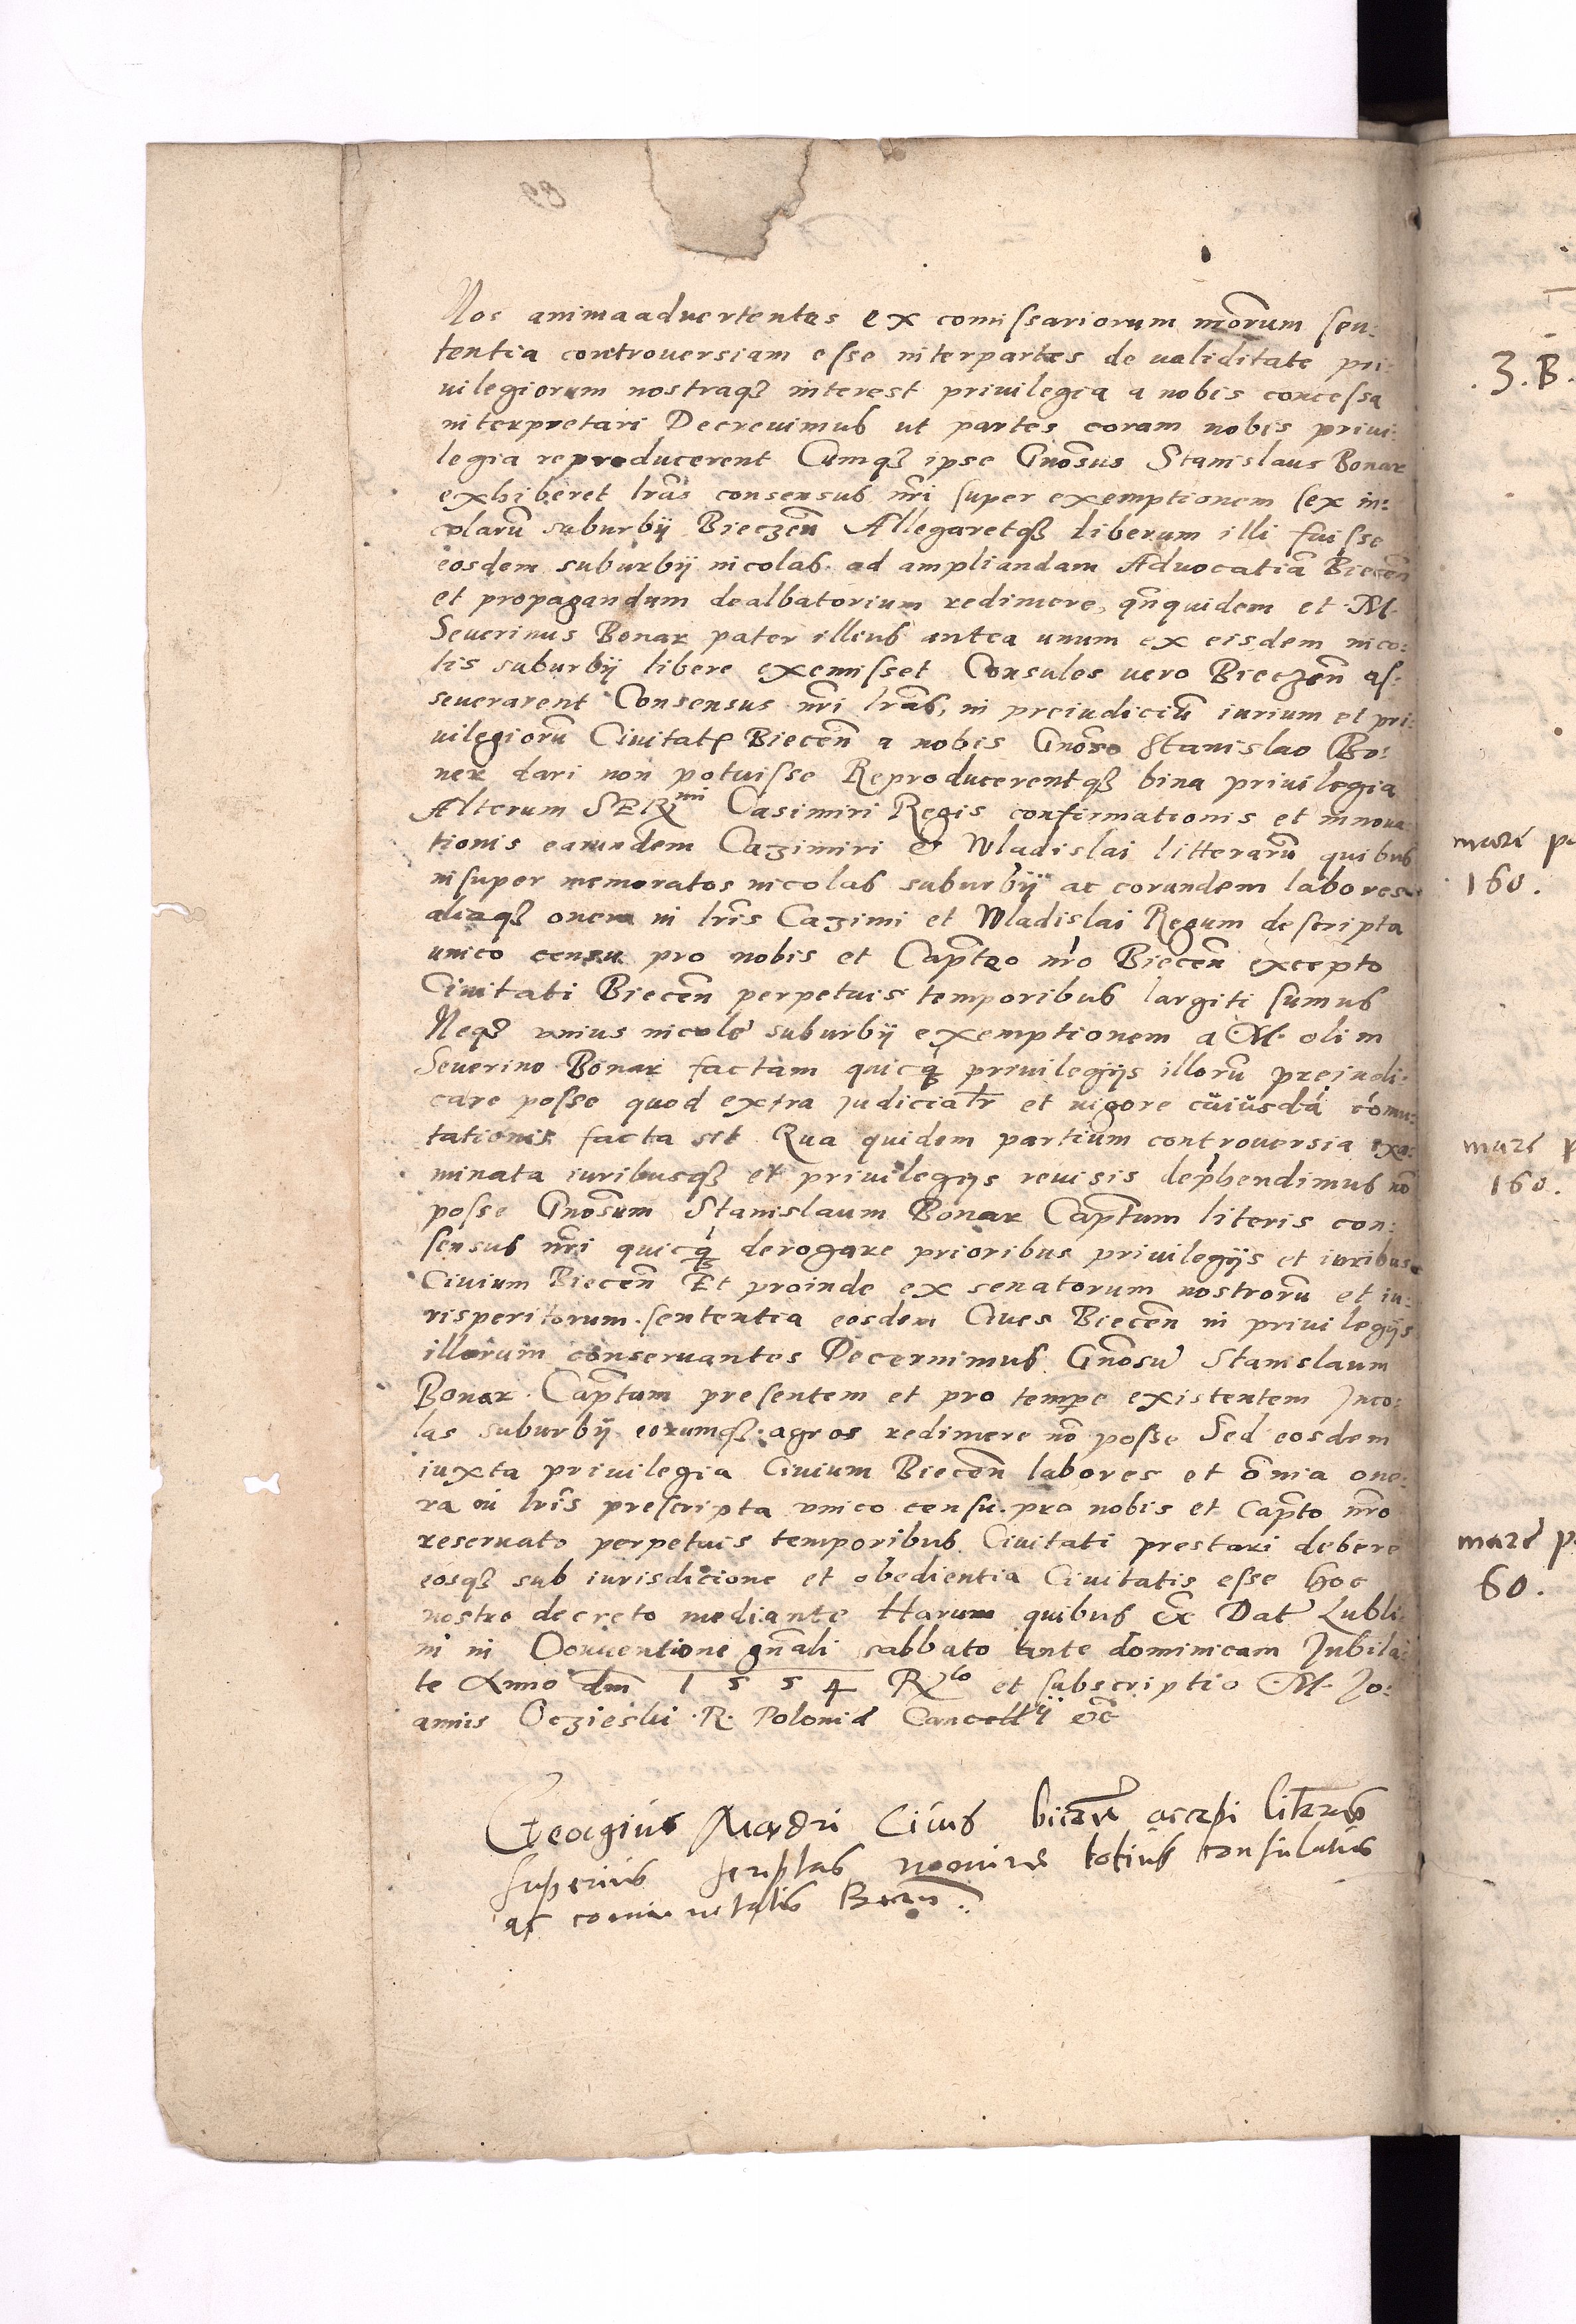 Nos animaadvertentes ex comissariorum nrorum sen:
tentia controversiam esse interpartes de validitate pri:
vilegiorum nostraqȝ interest privilegia a nobis concessa
interpretari Decrevimus ut partes coram nobis privi:
legia reproducerent Cumqȝ ipse Gnosus Stanislaus Bonar
exhiberet lras consensus nri super exemptionem sex in:
colaru suburbij Bieczen Allegaretqȝ liberum illi fuisse
eosdem suburbij incolas ad ampliandam Advocatia Biecen
et propagandum dealbatorium redimere, qnquidem et M.
Severinus Bonar pater illius antea unum ex eisdem inco:
lis suburbij libere exemisset Consules vero Bieczen as:
severarent Consensus nri lras, in preiudiciu iurium et pri:
vilegioru Civitatis Biecen a nobis Gnoso Stanislao Bo:
ner dari non potuisse Reproducerentqȝ bina privilegia
Alterum SER mi Casimiri Regis confirmationis et innova:
tionis earundem Cazimiri & Wladislai litteraru quibus
insuper memoratos incolas suburbij ac corundem labores
aliaqȝ onera in lris Cazimi et Wladislai Regum descripta
unico censu pro nobis et Captao nro Biecen excepto
Civitati Biecen perpetuis temporibus largiti sumus
Neqȝ unius incole suburbij exemptionem a M. olim
Severino Bonar factam quicq privilegijs illoru preiudi:
care posse quod extra judicialr et vigore cuiusda comu:
tationis facta sit Qua quidem partium controversia exa:
minata iuribusqȝ et privilegijs revisis dephendimus no
posse Gnosum Stanislaum Bonar Captum literis con:
sensus nri quicq derogare prioribus privilegijs et iuribus
Civium Biecen Et proinde ex senatorum nostroru et iu:
risperitorum sententia eosdem Cives Biecen in privilegijs
illorum conservantes Decernimus Gnosu Stanislaum
Bonar Captum presentem et pro tempe existentem Inco:
las suburbij eorumqȝ agros redimere no posse Sed eosdem
iuxta privilegia Civium Biecen labores et omia one:
ra in lris prescripta unico censu pro nobis et Capto nro
reservato perpetuis temporibus Civitati prestari debere
eosqȝ sub iurisdicione et obedientia Civitatis esse hoc
nostro decreto mediante Harum quibus &c Dat Lubli:
ni in Conventione gnali sabbato ante dominicam Jubila:
te Anno dm 1554 R to et subscriptio M. Jo:
annis Oczieski R. Polonie Cancellij &c
Georgius Civis biecen accepi literas
superius scriptas nomine totius consulatus
ac comunitatis Biecen
3. B.
160.
160.
60.